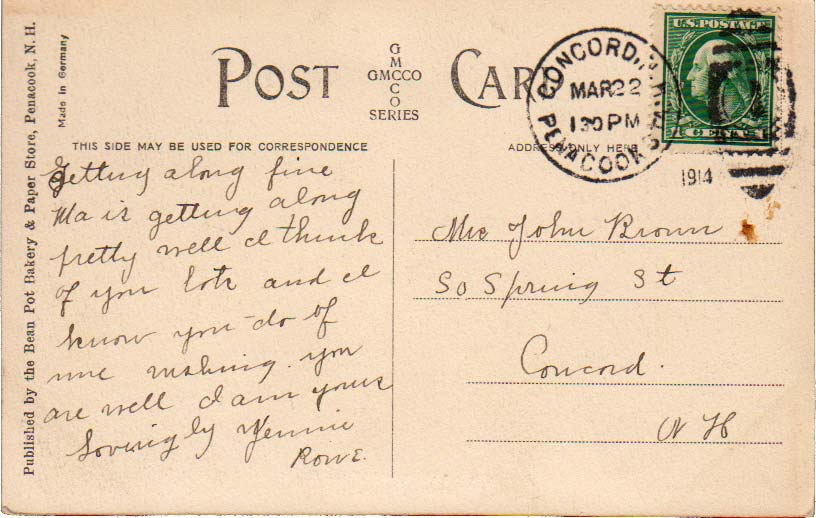 Published by the Bean Pot Bakery & Paper Store, Penacook, N. H.
Made in Germany
POST CARD
GMCCO
GMCCO
SERIES
THIS SIDE MAY BE USED FOR CORRESPONDENCE
ADDRESS ONLY HERE
CONCORD, N.H.
MAR 22
1 30 PM
1914
PENACOOK
U.S. POSTAGE
CENT
Getting along fine
Ma is getting along
pretty well I think
of you lots and I
know you do of
me wishing you
are well I am yours
lovingly Jennie
Rowe.
Mrs John Brown
So Spring St
Concord.
N H